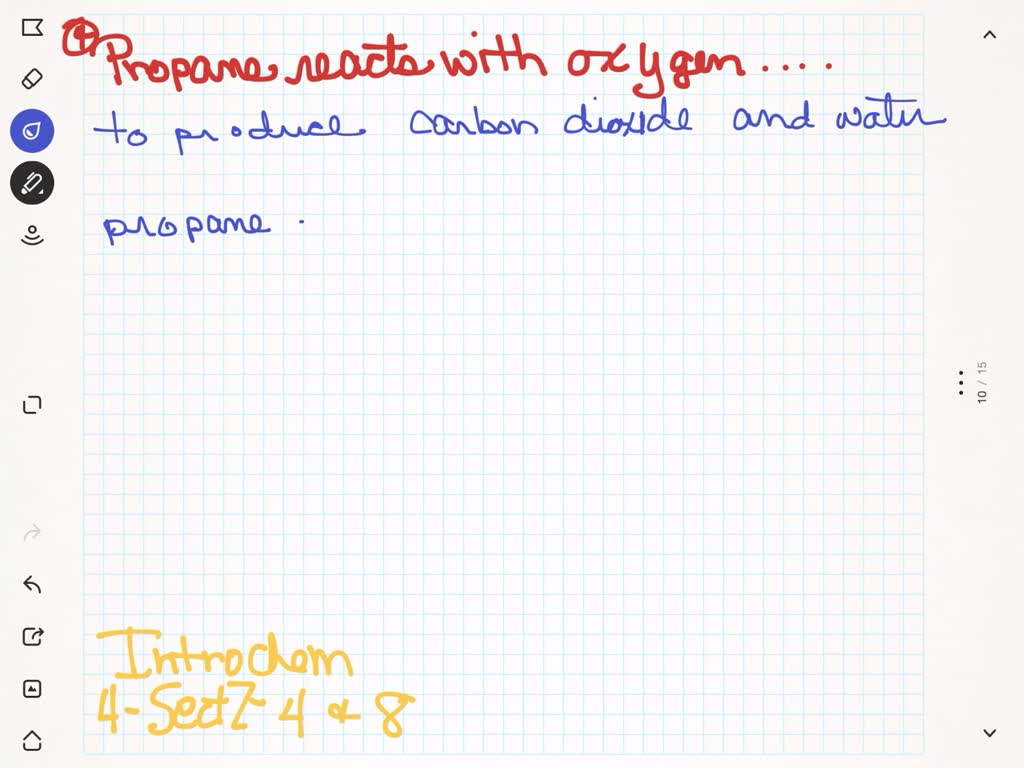 ④ Propane reacts with oxygen ....
to produce carbon dioxide and water
propane .
10 / 15
Introchem
4-Sect 7- 4 & 8